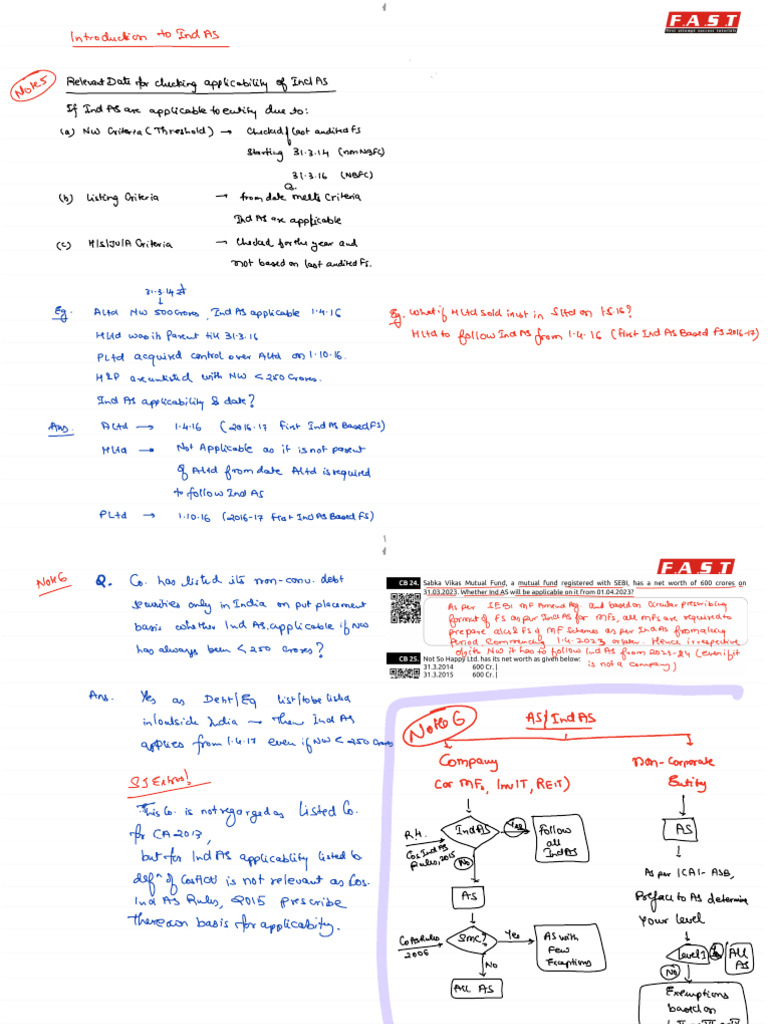 F.A.S.T
First attempt success tutorials
Introduction to Ind AS
Note 5
Relevant Date for checking applicability of Ind AS
If Ind AS are applicable to entity due to:
(a) NW Criteria (Threshold) → Checked f last audited FS
Starting 31.3.14 (non NBFC)
31.3.16 (NBFC)
(b) Listing Criteria → from date meets Criteria
Ind AS are applicable
(c) H/S/JV/A Criteria → Checked for the year and
not based on last audited FS.
31.3.14
Eg. A Ltd NW 500 crores, Ind AS applicable 1.4.16
H Ltd was its Parent till 31.3.16
P Ltd acquired control over A Ltd on 1.10.16.
H & P are unlisted with NW < 250 Crores.
Ind AS applicability & date?
Ans. A Ltd → 1.4.16 (2016-17 First Ind AS Based FS)
H Ltd → Not Applicable as it is not parent
of A Ltd from date A Ltd is required
to follow Ind AS
P Ltd → 1.10.16 (2016-17 First Ind AS Based FS)
Eg. What if H Ltd sold invt in S Ltd on 1.5.16?
H Ltd to follow Ind AS from 1.4.16 (First Ind AS Based FS 2016-17)
F.A.S.T
Note 6
Q. Co. has listed its non-conv. debt
securities only in India on pvt placement
basis whether Ind AS applicable if NW
has always been < 250 crores?
Ans. Yes as Debt/Eq list/to be listed
in/outside India → Then Ind AS
applies from 1.4.17 even if NW < 250 Crores
SJ Extras!
This Co. is not regarded as Listed Co.
for CA 2013,
but for Ind AS applicability listed &
defn of Cos Act is not relevant as Cos.
Ind AS Rules, 2015 prescribe
there own basis for applicability.
CB 24. Sabka Vikas Mutual Fund, a mutual fund registered with SEBI, has a net worth of 600 crores on
31.03.2023. Whether Ind AS will be applicable on it from 01.04.2023?
As per SEBI MF Amend Reg. and based on circular prescribing
format of FS as per Ind AS for MFs, all MFs are required to
prepare a/cs & FS of MF Schemes as per Ind AS from a/cing
period commencing 1.4.2023 or after. Hence irrespective
of its NW it has to follow Ind AS from 2023-24 (even if it
is not a company)
CB 25. Not So Happy Ltd. has its net worth as given below:
31.3.2014 600 Cr. |
31.3.2015 600 Cr. |
Note 6
AS/Ind AS
Company
(or MFs, InvIT, REIT)
Non-Corporate
Entity
R.H.
Cos Ind AS
Rules, 2015
Ind AS
Yes
Follow
all
Ind AS
No
AS
Cos AS Rules
2006
SMC?
Yes
AS with
Few
Exemptions
No
All AS
AS
As per ICAI-ASB,
Preface to AS determine
your level
Level I
All
AS
No
Exemptions
based on